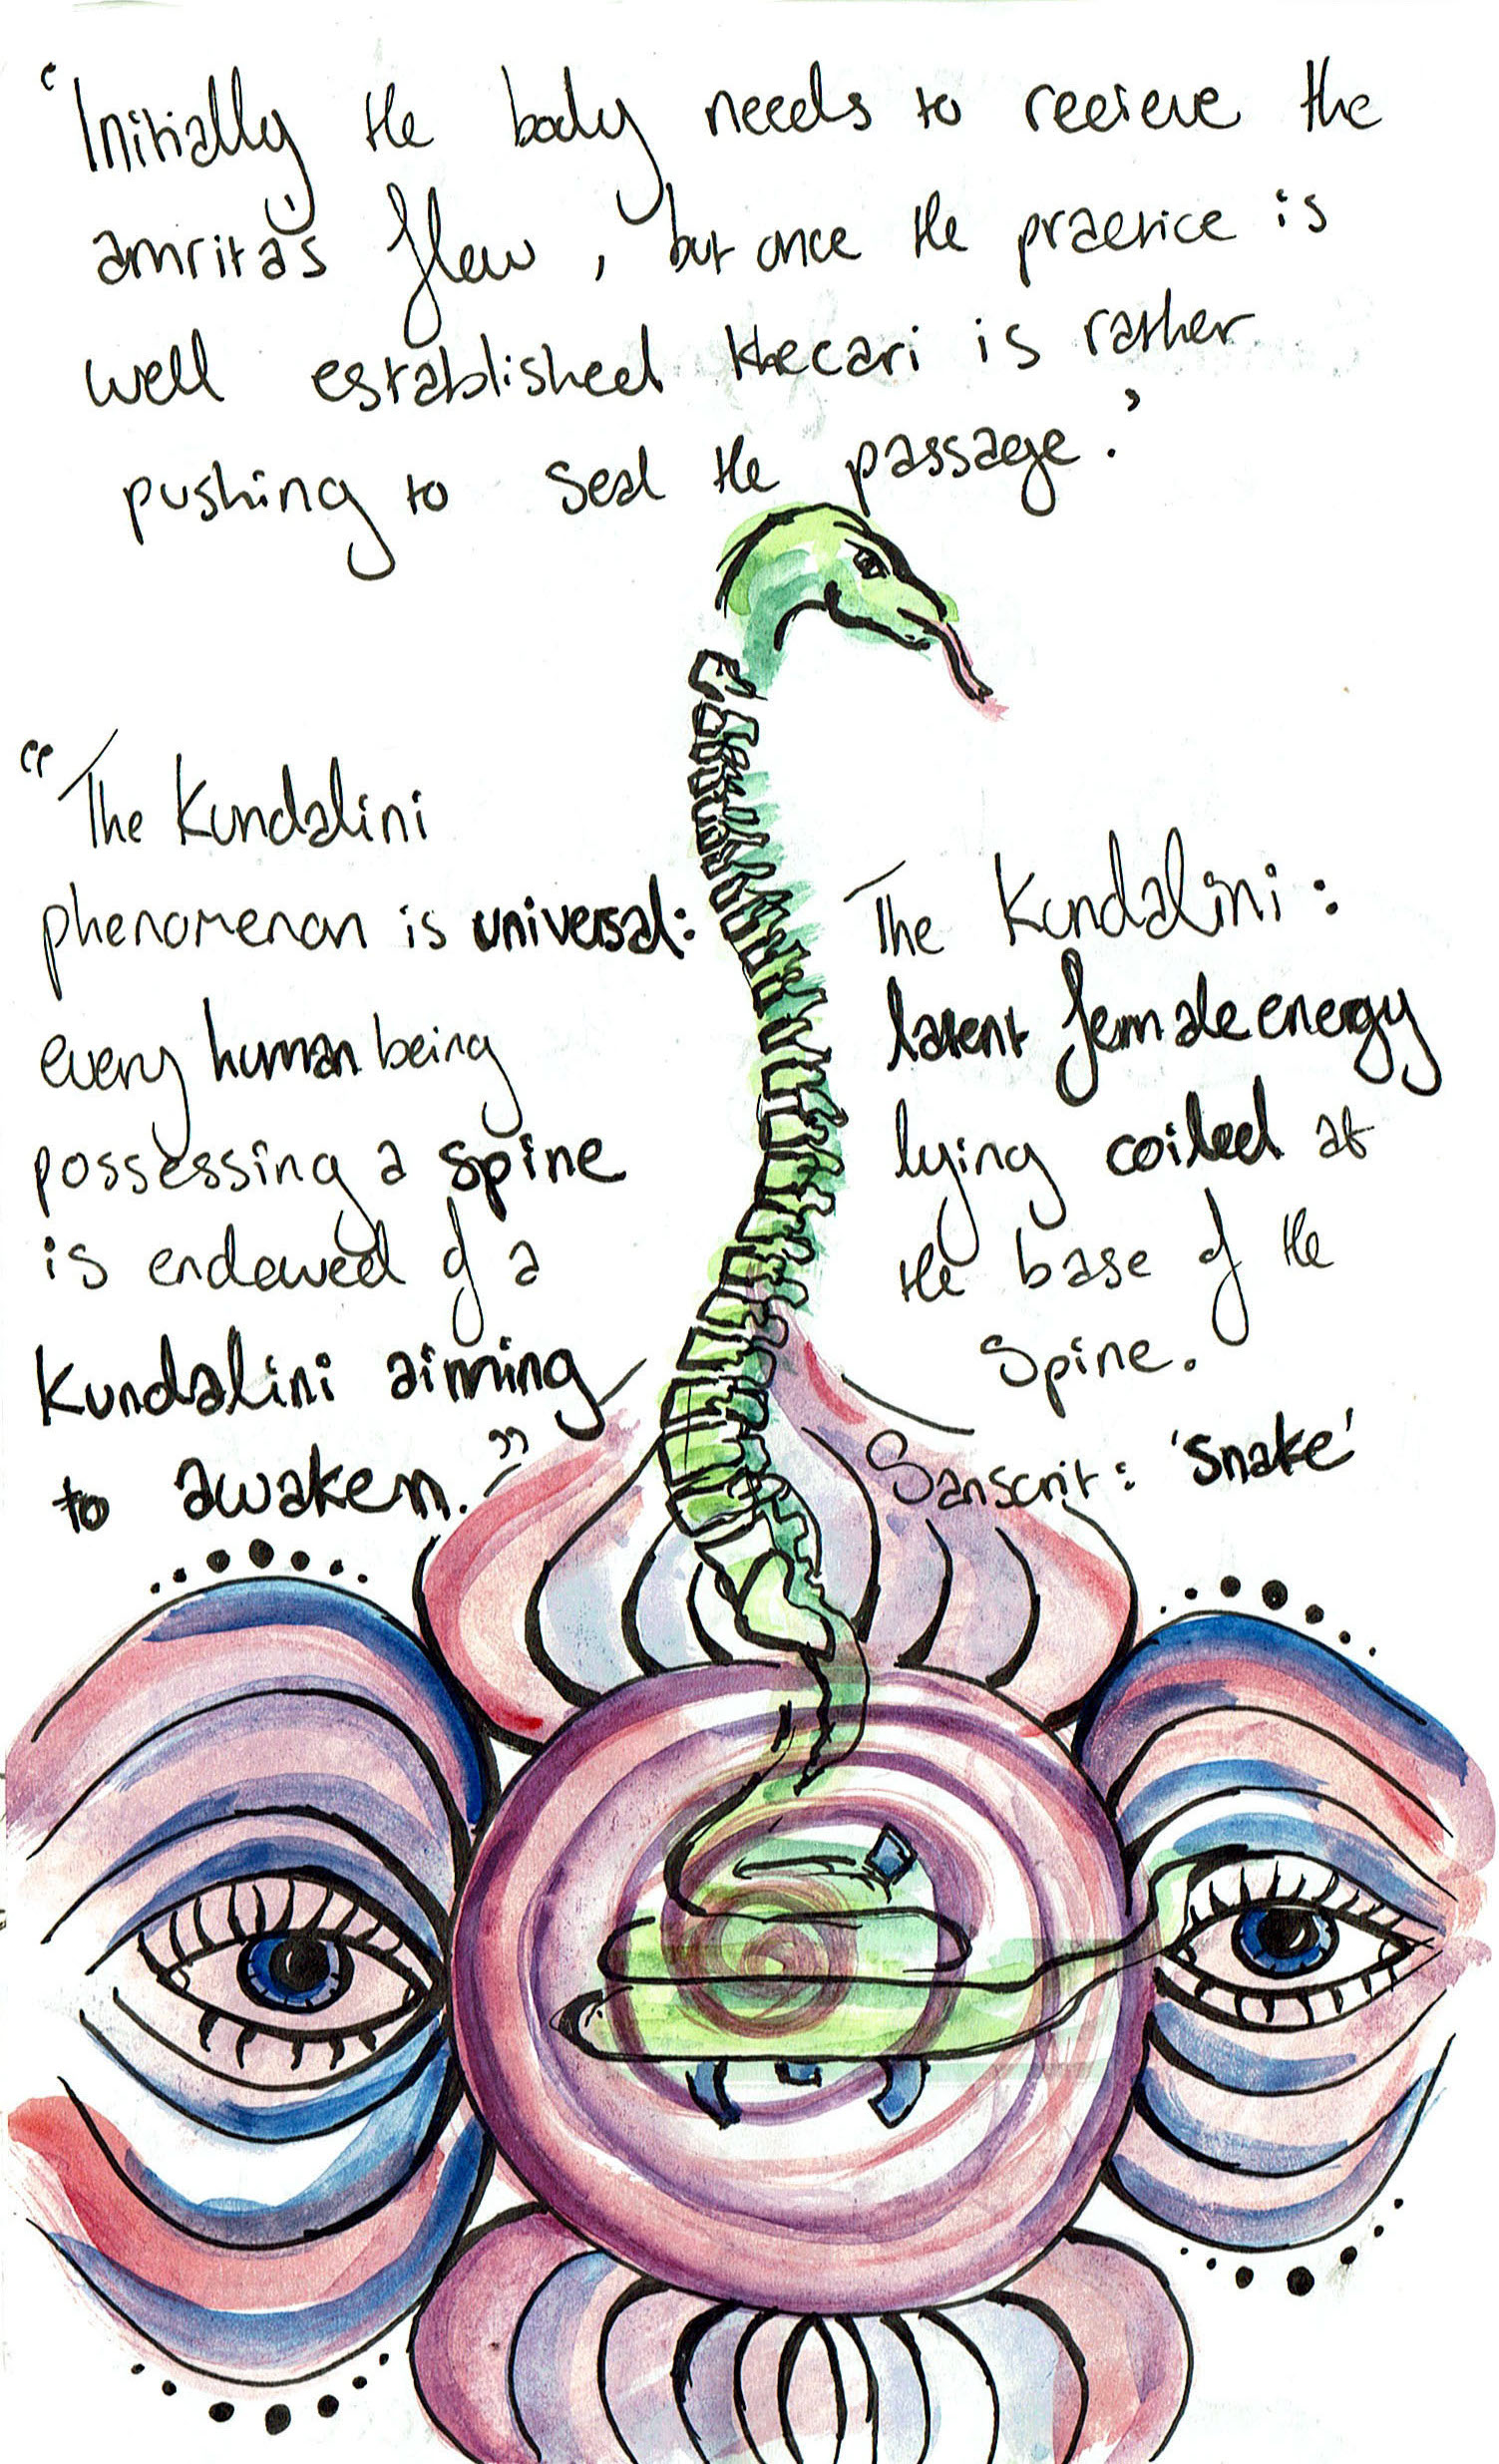 'Initially the body needs to recieve the
amrita's flow, but once the practice is
well established Khecari is rather
pushing to seal the passage.'
"The Kundalini
phenomenon is universal:
every human being
possessing a spine
is endowed of a
Kundalini aiming
to awaken."
The Kundalini:
latent female energy
lying coiled at
the base of the
Spine.
Sanscrit: 'Snake'